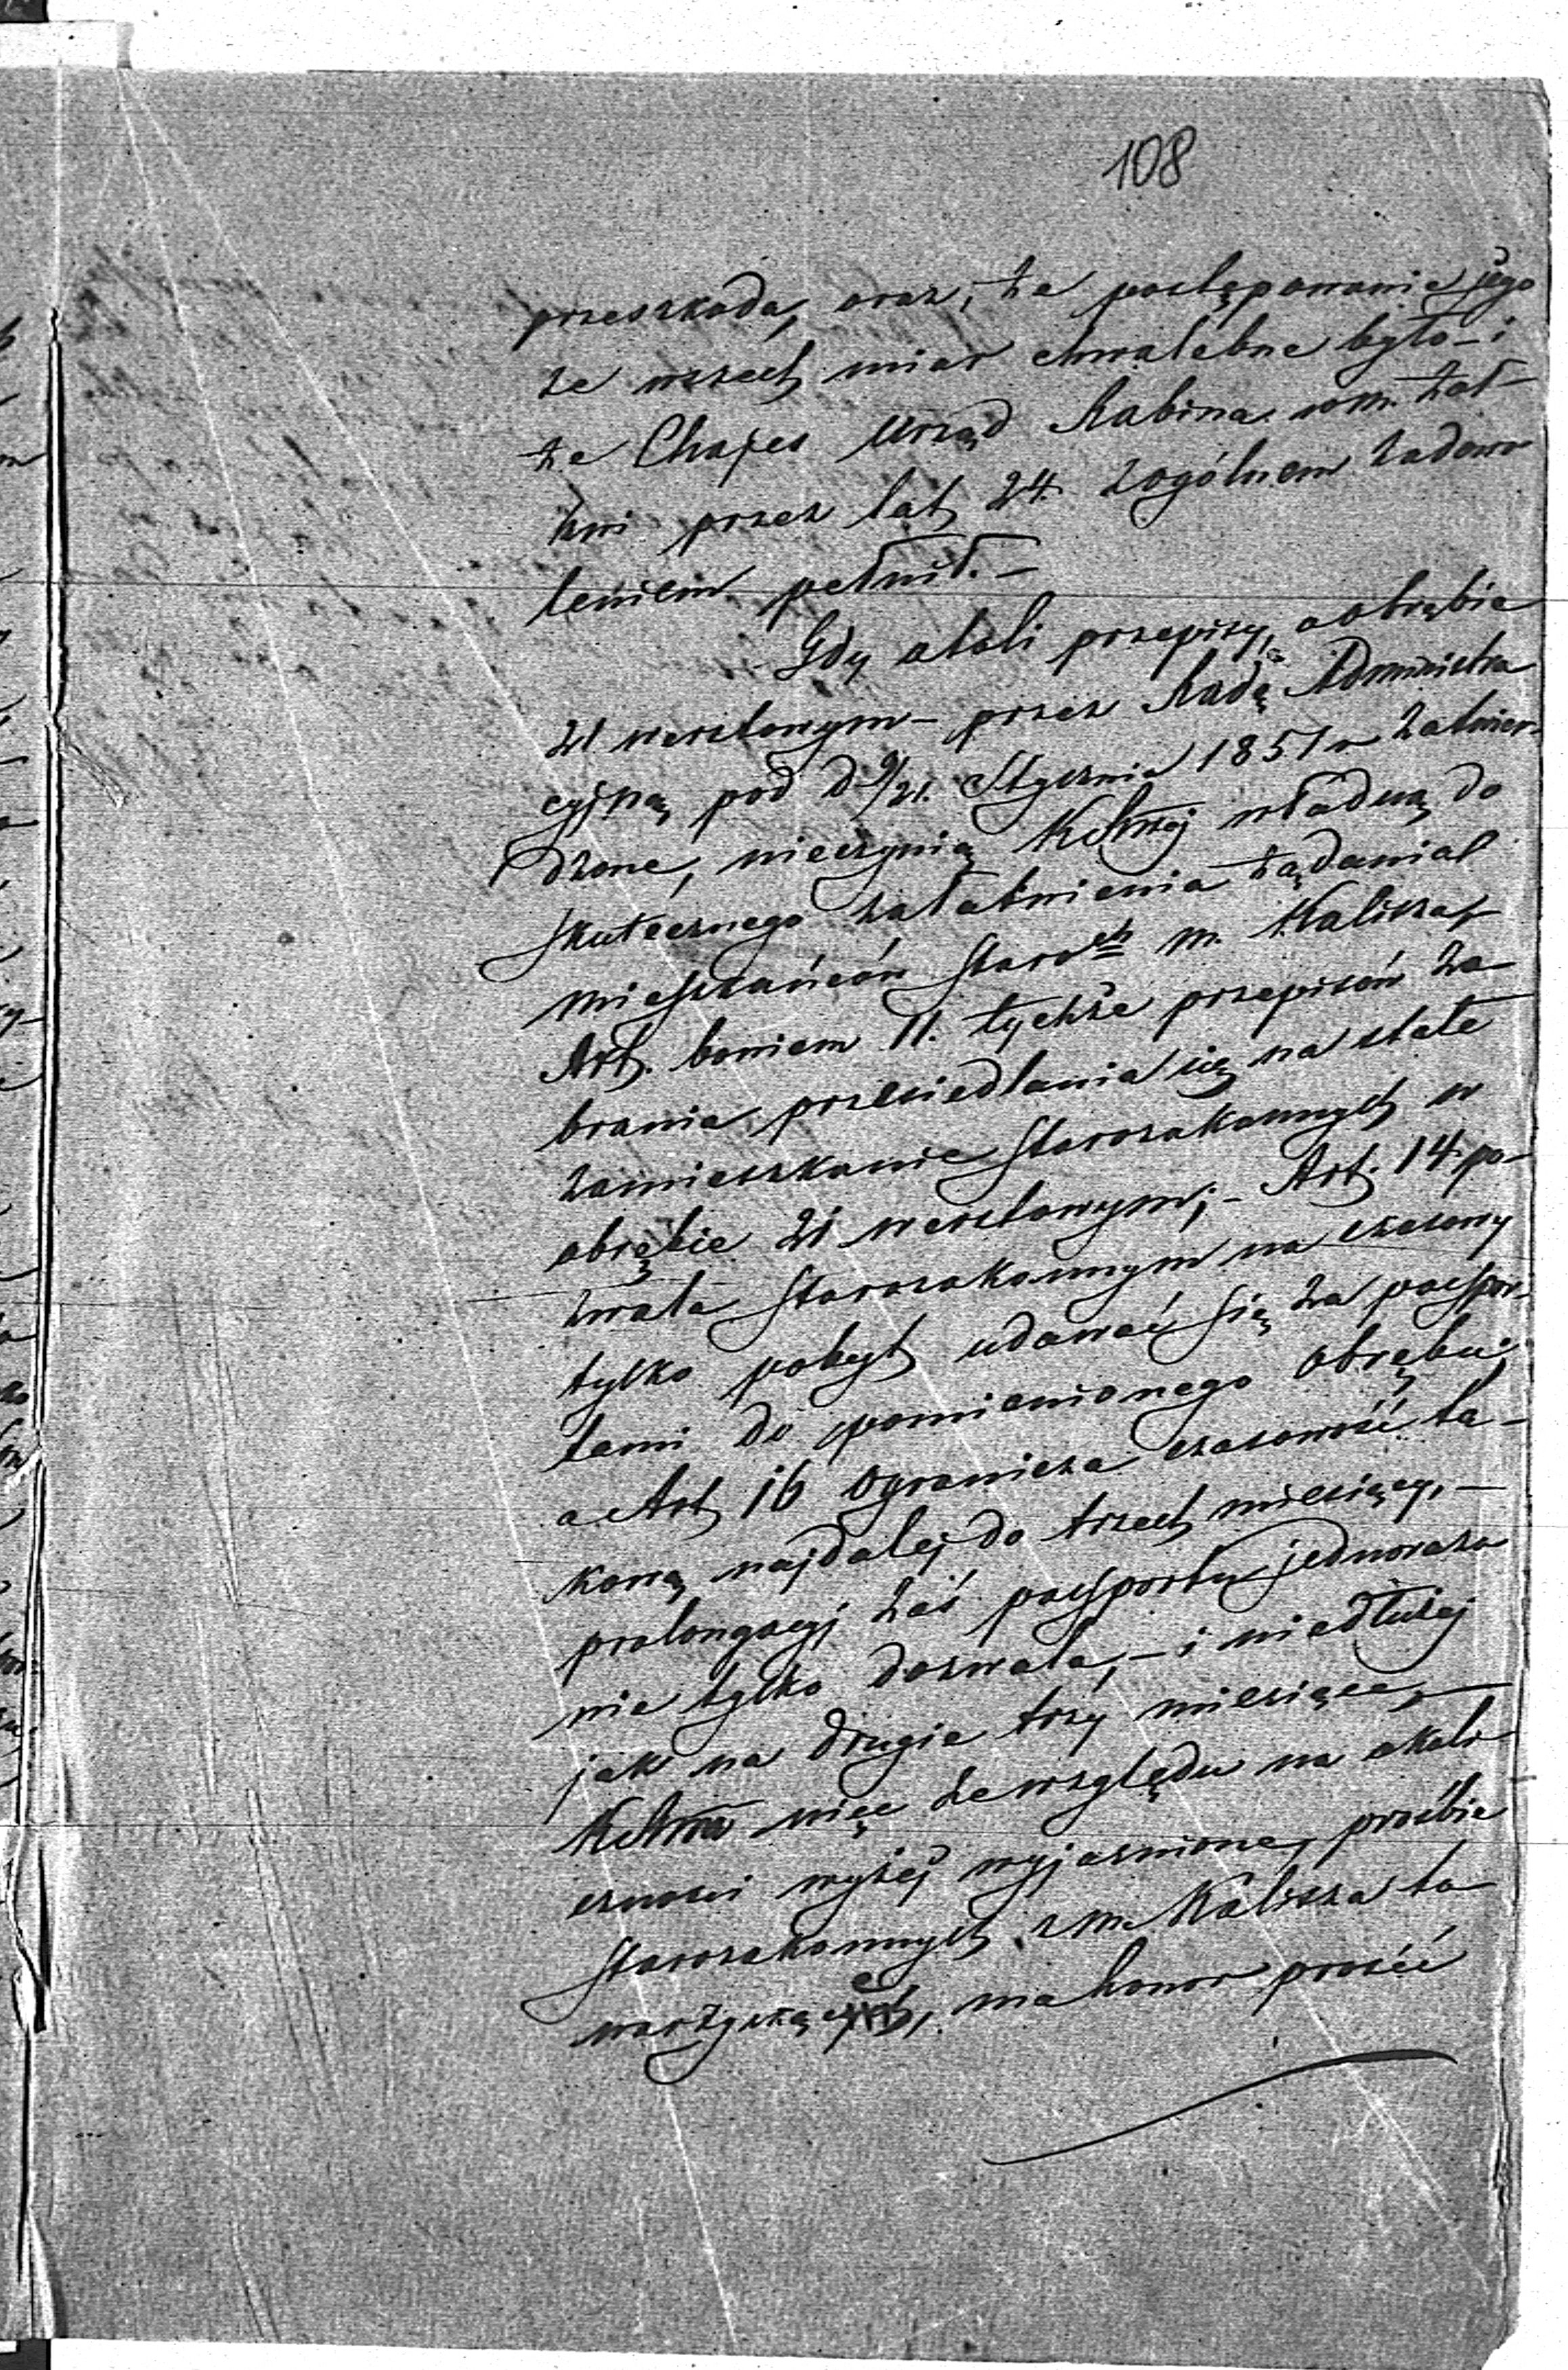 108
przeszkodą, oraz, że postępowanie jego
ze wszech miar chwalebne było – i
że Chajes Urząd Rabina w m. Żół-
kwi przez lat 24. z ogólnem zadowo
leniem pełnił. –
Gdy atoli przepisy, o obrębie
21 werstowym – przez Radę Administra
cyjną pod d 9/21. Stycznia 1851 r zatwier-
dzone, nieczynią władną do
skutecznego załatwienia żądania
mieszkańców Staroch m. Kalisza, –
Art. bowiem 11. tychże przepisów za
brania przesiedlania się na stałe
zamieszkanie Starozakonnych w
obrębie 21 werstowym; – Art. 14 po-
zwala Starozakonnym na czasowy
tylko pobyt udawać się za paszpor-
tami do pomienionego obrębu;
a Art 16 ogranicza czasowość ta-
kową najdalej do trzech miesięcy, –
prolongacyj zaś paszportu jednorazo
nie tylko dozwala, – i niedłużej
jak na drugie trzy miesiące, –
więc ze względu na okoli
czności wyżej wyjaśnione, prośbie
Starozakonnych z m. Kalisza to
warzyszące, ma honor prosić